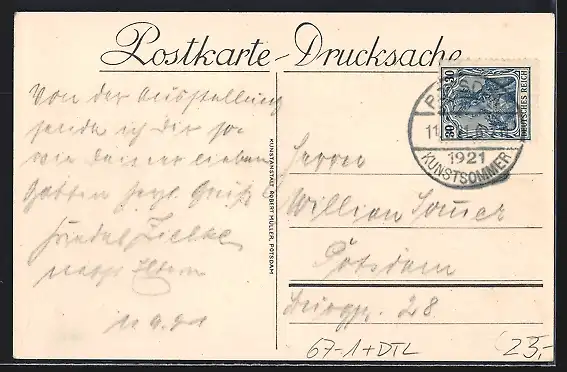 Postkarte - Drucksache
Von der Ausstellung
sende ich Dir so-
wie Deiner lieben
Gattin herzl. Grüße
nebst Eltern
11.9.21
KUNSTANSTALT, ROBERT MÜLLER, POTSDAM
30 30
DEUTSCHES REICH
P
11
1921
KUNSTSOMMER
Herrn
Willian
Potsdam
28
67-1+DTL
23,-